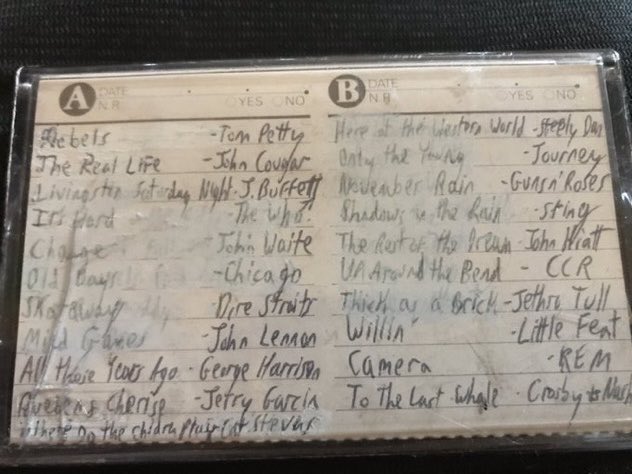 A DATE
N.R. YES NO
Rebels - Tom Petty
The Real Life - John Cougar
Livingston Saturday Night - J. Buffett
It's Hard - The Who
Change - John Waite
Old Days - Chicago
Skataway - Dire Straits
Mind Games - John Lennon
All those Years Ago - George Harrison
Cherise - Jerry Garcia
Where Do the Children Play - Cat Stevens
B DATE
N.R. YES NO
Here at the Western World - Steely Dan
Only the Young - Journey
November Rain - Guns n' Roses
Shadows in the Rain - Sting
The Rest of the Dream - John Hiatt
Up Around the Bend - CCR
Thick as a Brick - Jethro Tull
Willin' - Little Feat
Camera - REM
To The Last Whale - Crosby & Nash